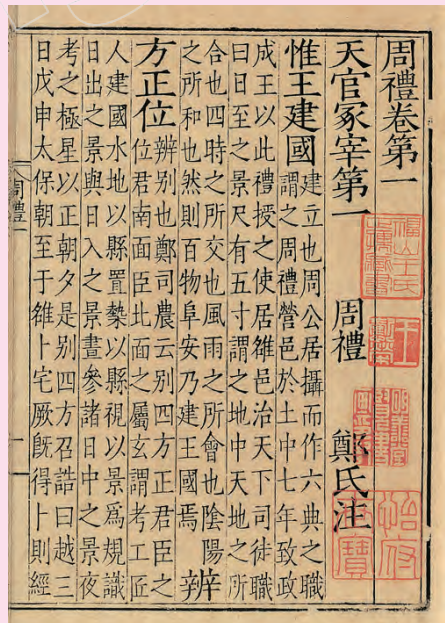 周禮卷第一
天官冢宰第一 周禮 鄭氏注
惟王建國 建立也周公居攝而作六典之職
謂之周禮營邑於土中七年致政
成王以此禮授之使居雒邑治天下司徒職
曰日至之景尺有五寸謂之地中天地之所
合也四時之所交也風雨之所會也陰陽
之所和也然則百物阜安乃建王國焉 辨
方正位 辨别也鄭司農云别四方正君臣之
位君南面臣北面之屬玄謂考工匠
人建國水地以縣置勢以縣視以景爲規識
日出之景與日入之景晝參諸日中之景夜
考之極星以正朝夕是别四方召誥曰越三
日戊申太保朝至于雒卜宅厥旣得卜則經
周禮一